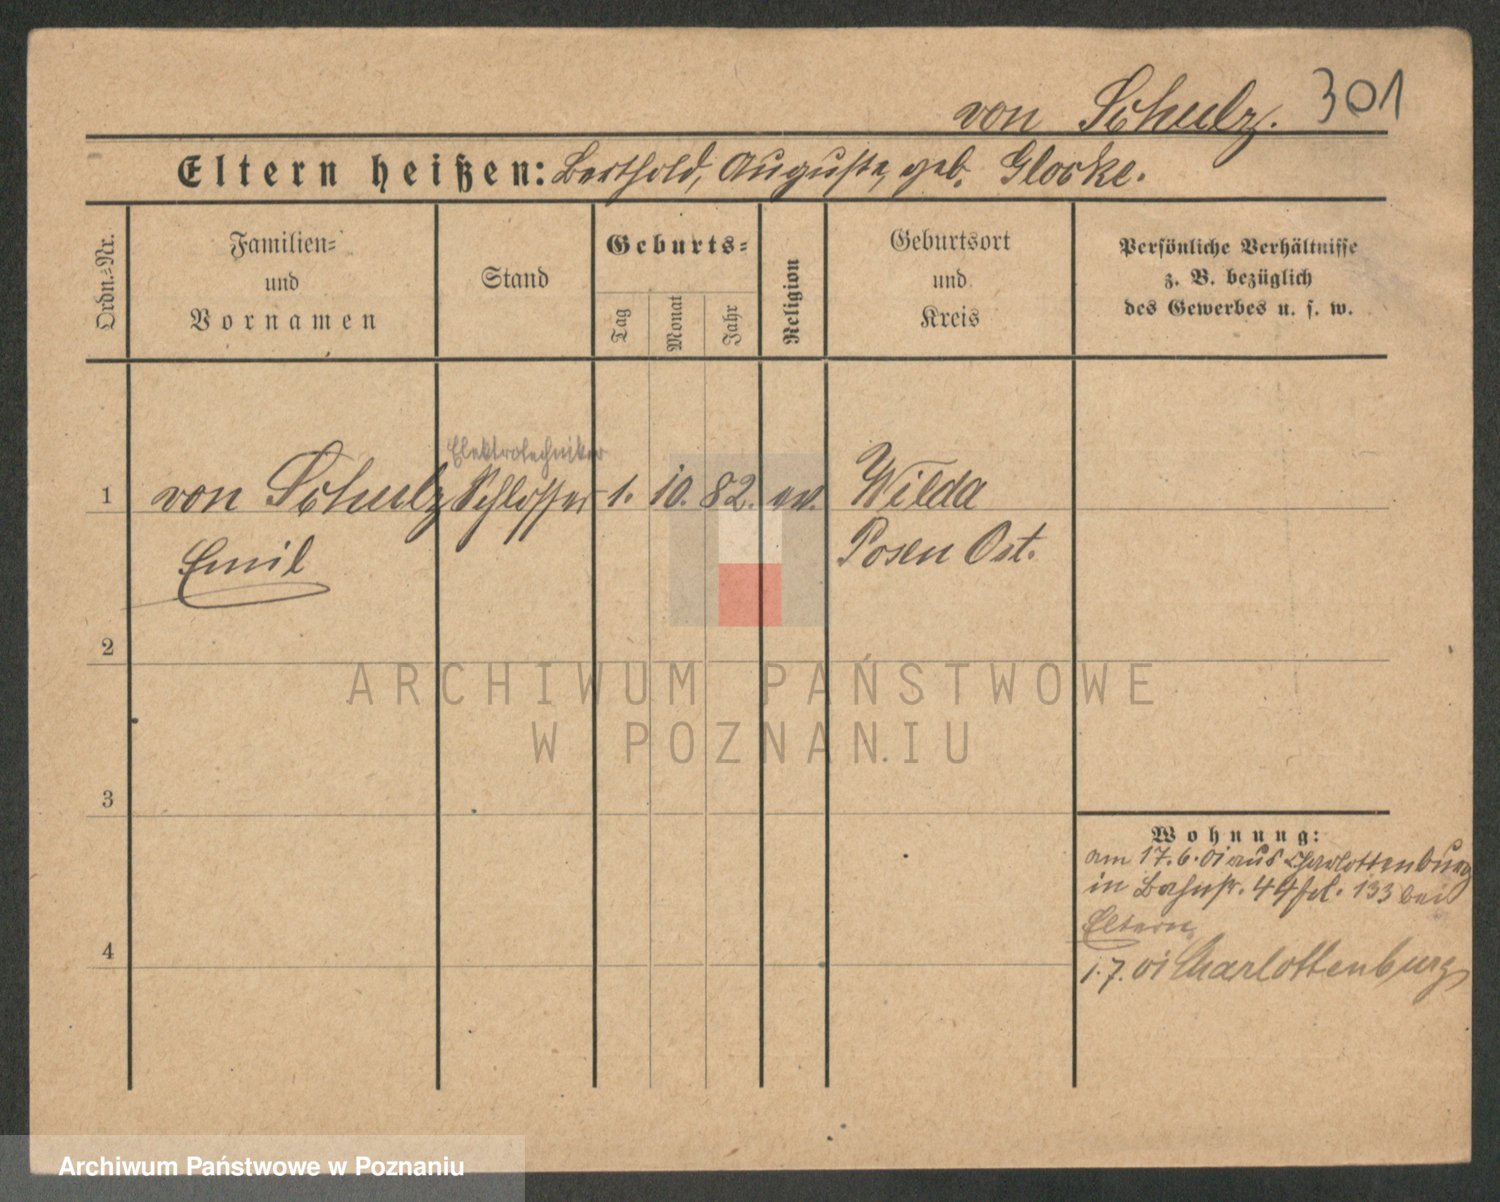 von Schulz. 301
Eltern heißen: Berthold, Auguste, geb. Glocke.
Ordn.=Nr.
Familien=
und
Vornamen
Stand
Geburts=
Tag
Monat
Jahr
Religion
Geburtsort
und
Kreis
Persönliche Verhältnisse
z. B. bezüglich
des Gewerbes u. s. w.
Elektrotechniker
1 von Schulz Schlosser 1. 10. 82. ev. Wilda
Emil Posen Ost.
2
3
4
Wohnung:
am 17.6.01 aus Charlottenburg
in Bahnstr. 44 133 bei
Eltern
1.7.01 Charlottenburg
ARCHIWUM PAŃSTWOWE
W POZNANIU
Archiwum Państwowe w Poznaniu